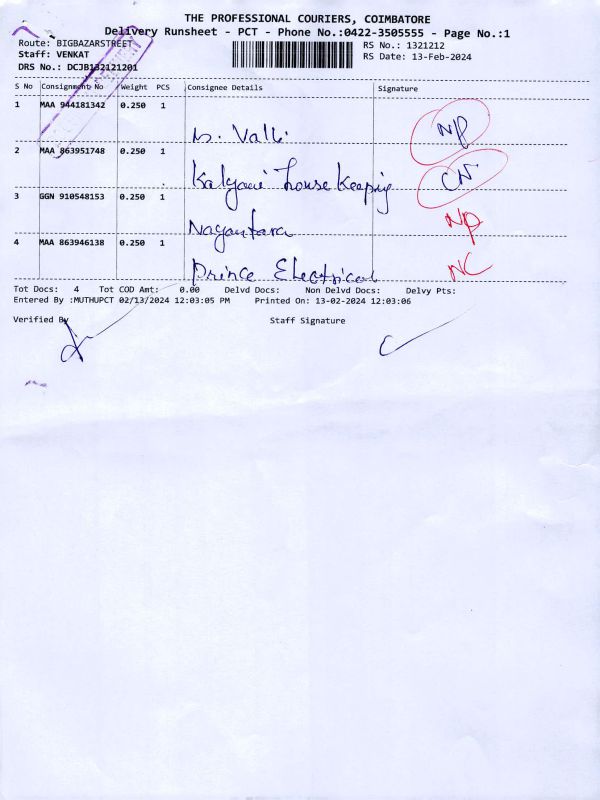 THE PROFESSIONAL COURIERS, COIMBATORE
Delivery Runsheet - PCT - Phone No.:0422-3505555 - Page No.:1
Route: BIGBAZARSTREET
RS No.: 1321212
Staff: VENKAT
RS Date: 13-Feb-2024
DRS No.: DCJB132121201
S No Consignment No Weight PCS Consignee Details Signature
1 MAA 944181342 0.250 1
Valli NP
2 MAA 863951748 0.250 1
Kalyani house Keeping CN
3 GGN 910548153 0.250 1
Nayantara NP
4 MAA 863946138 0.250 1
Prince Electrical NC
Tot Docs: 4 Tot COD Amt: 0.00 Delvd Docs: Non Delvd Docs: Delvy Pts:
Entered By :MUTHUPCT 02/13/2024 12:03:05 PM Printed On: 13-02-2024 12:03:06
Verified By Staff Signature